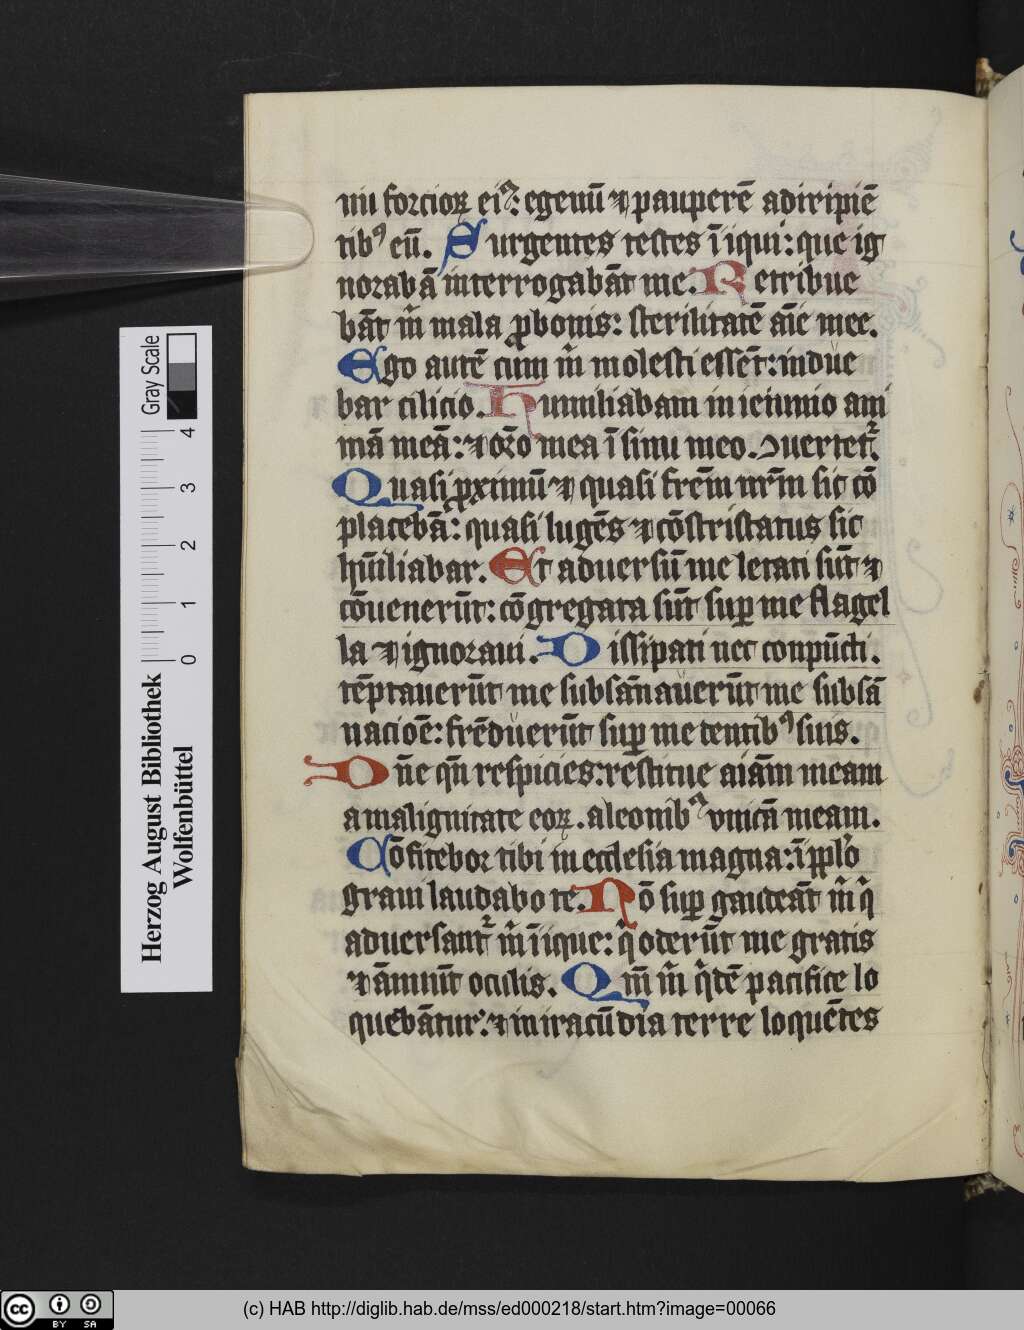 nu forcioꝝ eiꝰ: egenū ⁊ pauperē adiripiē
tibꝰ eū. Surgentes testes ī iqui: que ig
norabā interrogabāt me. Retribue
bāt m̄ mala ꝓ bonis: sterilitatē aīe mee.
Ego autē cum m̄ molesti essēt: indue
bar cilicio. Humiliabam in ieiunio ani
mā meā: ⁊ or̄o mea ī sinu meo ꝯuertet᷑.
Quasi ꝓximū ⁊ quasi frēm nr̄m sic cō
placebā: quasi lugēs ⁊ cōstristatus sic
hūiliabar. Et aduersū me letati sūt ⁊
cōuenerūt: cōgregata sūt suꝑ me flagel
la ⁊ ignoraui. Dissipati nec conpūcti.
tēptauerūt me subsānauerūt me subsā
nacioē: frēduerūt suꝑ me dentibꝰ suis.
Dn̄e qn̄ respicies: restitue aīam meam
a malignitate eoꝝ. a leonibꝰ vnicā meam.
Cōfitebor tibi in ecclesia magna: ī ppl'o
graui laudabo te. Nō suꝑ gaudeāt m̄ qͥ
aduersant᷑ m̄ iique: qͥ oderūt me gratis
⁊ āmnūt oculis. Qm̄ m̄ qͥdē pacifice lo
quebātur: ⁊ in iracūdia terre loquētes
Herzog August Bibliothek
Wolfenbüttel
Gray Scale
0 1 2 3 4
cc BY SA
(c) HAB http://diglib.hab.de/mss/ed000218/start.htm?image=00066